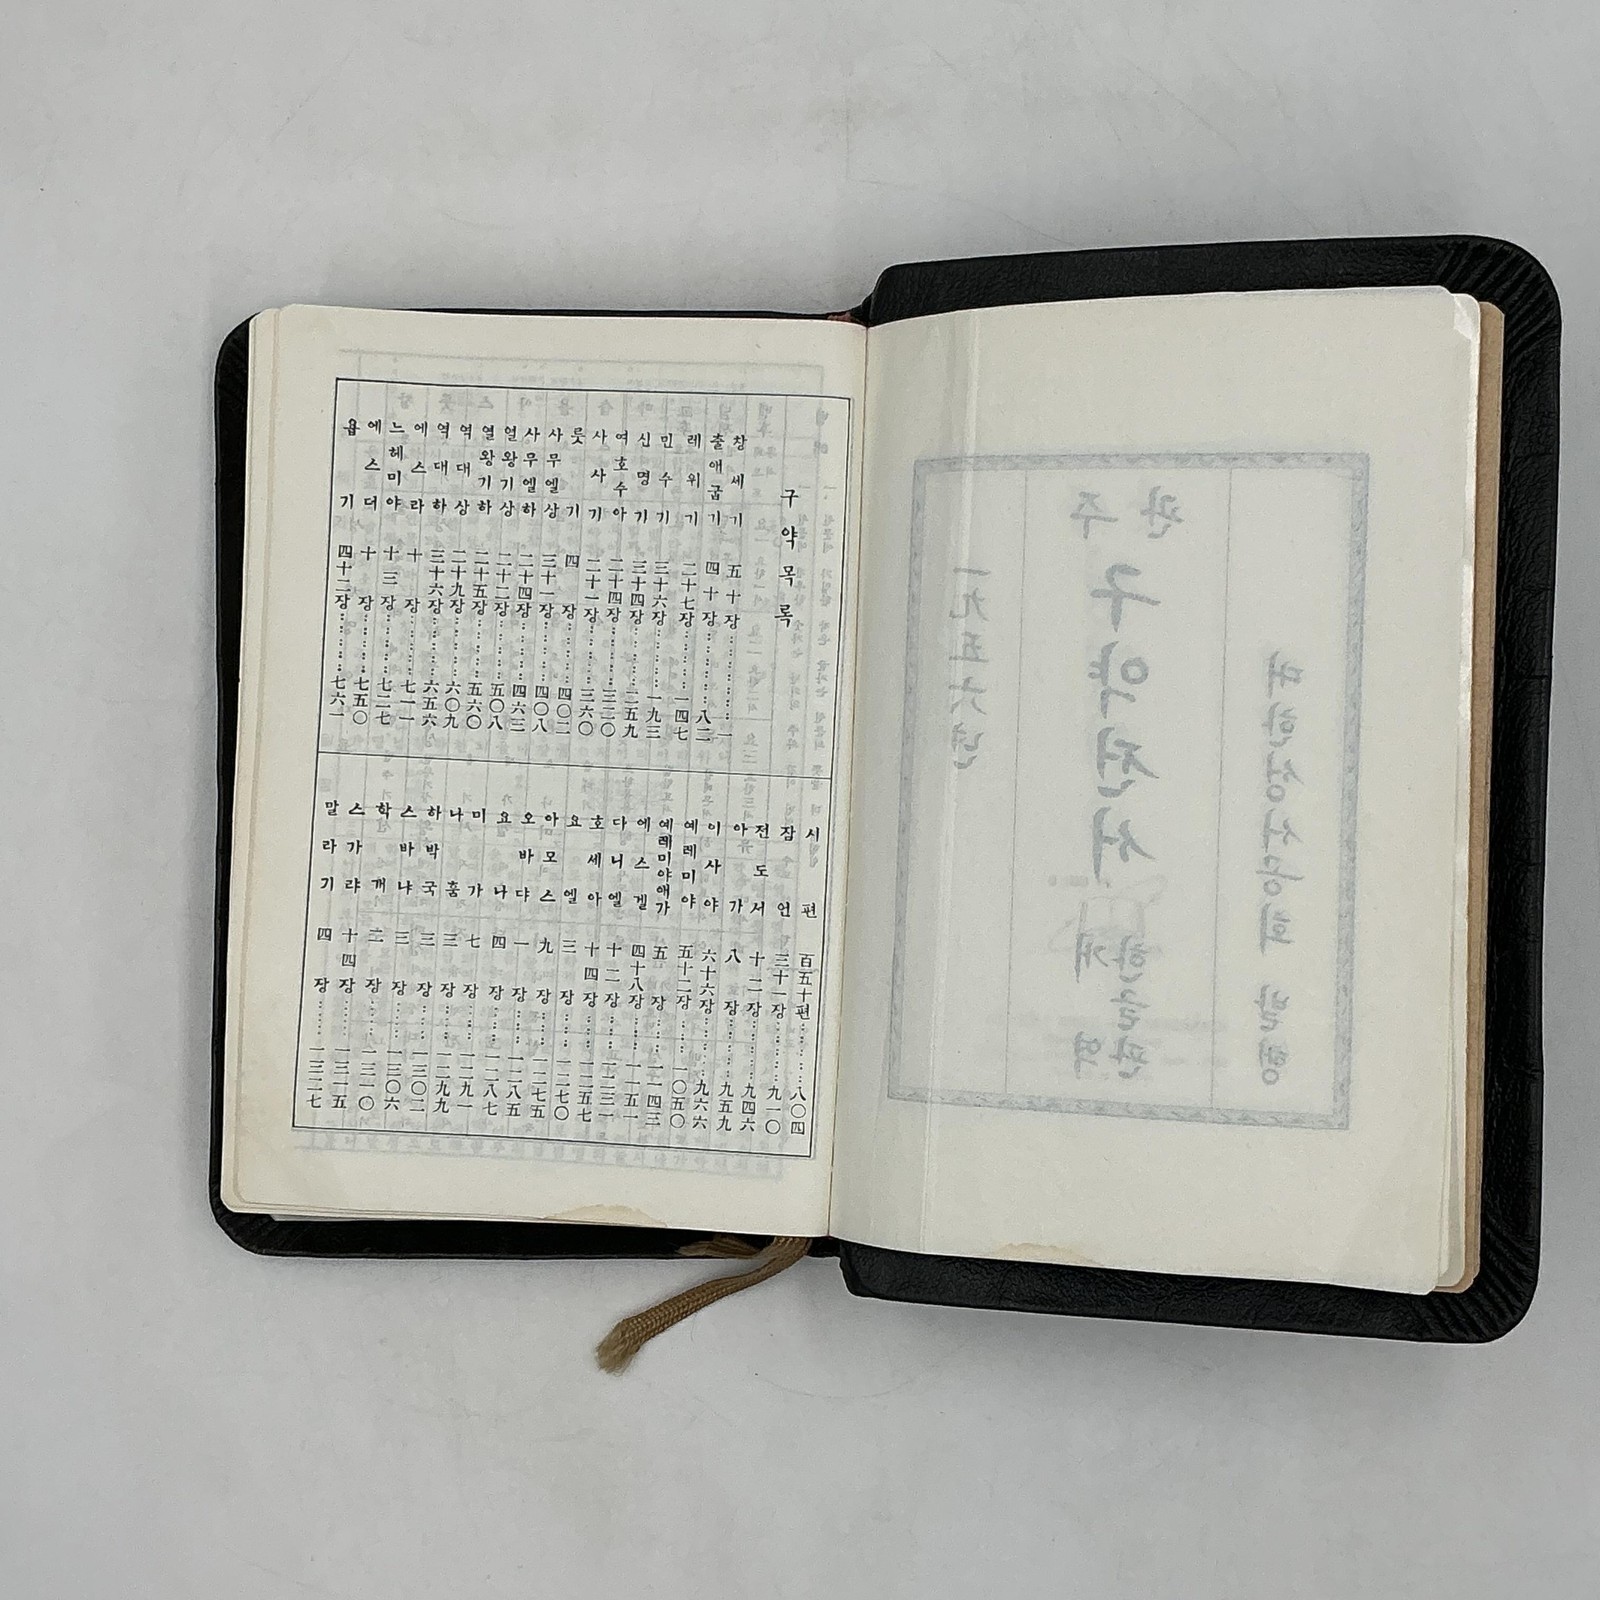 대한성서공회 발행
관주 구약전서 한글판 개역
一九五六년
구약목록
창세기 五十장……一
출애굽기 四十장……八二
레위기 二十七장……一四七
민수기 三十六장……一九三
신명기 三十四장……二五九
여호수아 二十四장……三二〇
사사기 二十一장……三六〇
룻기 四장……四〇二
사무엘상 三十一장……四〇八
사무엘하 二十四장……四六三
열왕기상 二十二장……五〇八
열왕기하 二十五장……五六〇
역대상 二十九장……六〇九
역대하 三十六장……六五六
에스라 十장……七一一
느헤미야 十三장……七二七
에스더 十장……七五〇
욥기 四十二장……七六一
시편 百五十편……八〇四
잠언 三十一장……九一〇
전도서 十二장……九四六
아가 八장……九五九
이사야 六十六장……九六六
예레미야 五十二장……一〇五〇
예레미야애가 五장……一一四三
에스겔 四十八장……一一五一
다니엘 十二장……一二三一
호세아 十四장……一二五七
요엘 三장……一二七〇
아모스 九장……一二七五
오바댜 一장……一二八五
요나 四장……一二八七
미가 七장……一二九一
나훔 三장……一二九九
하박국 三장……一三〇二
스바냐 三장……一三〇六
학개 二장……一三一〇
스가랴 十四장……一三一五
말라기 四장……一三二七